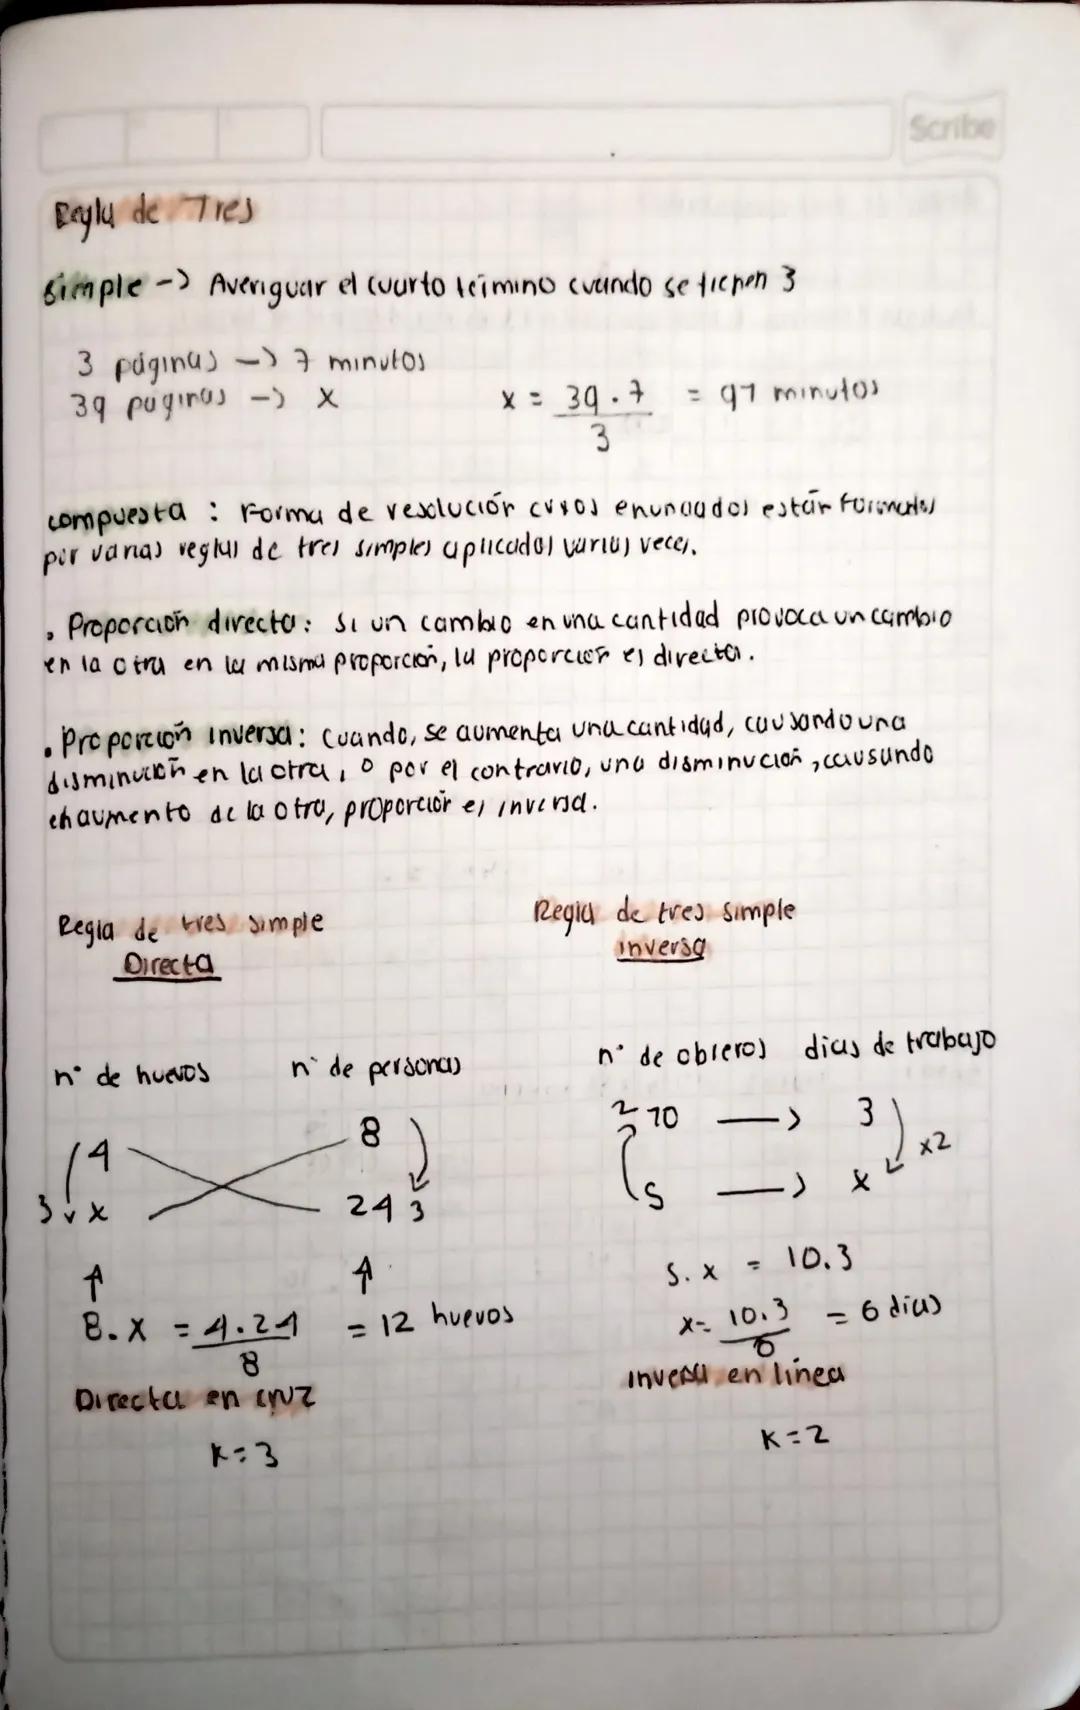 Scribe
Regla de Tres
simple -> Averiguar el cuarto término cuando se tienen 3
3 páginas -> 7 minutos
39 paginas -> x
x = 39 . 7 = 91 minutos
3
compuesta : Forma de resolución cuyos enunciados están formados
por varias reglas de tres simples aplicadas varias veces.
. Proporción directa: si un cambio en una cantidad provoca un cambio
en la otra en la misma proporción, la proporción es directa.
. Proporción inversa: cuando, se aumenta una cantidad, causando una
disminución en la otra, o por el contrario, una disminución, causando
en aumento de la otra, proporción es inversa.
Regla de tres simple
Directa
n° de huevos n° de personas
4 8
3 x 24 3
8.x = 4.24 = 12 huevos
8
Directa en cruz
K=3
Regla de tres simple
inversa
n° de obreros dias de trabajo
2 10 -> 3
x2
5 -> x
5.x = 10.3
x= 10.3 = 6 días
inversa en línea
K=2